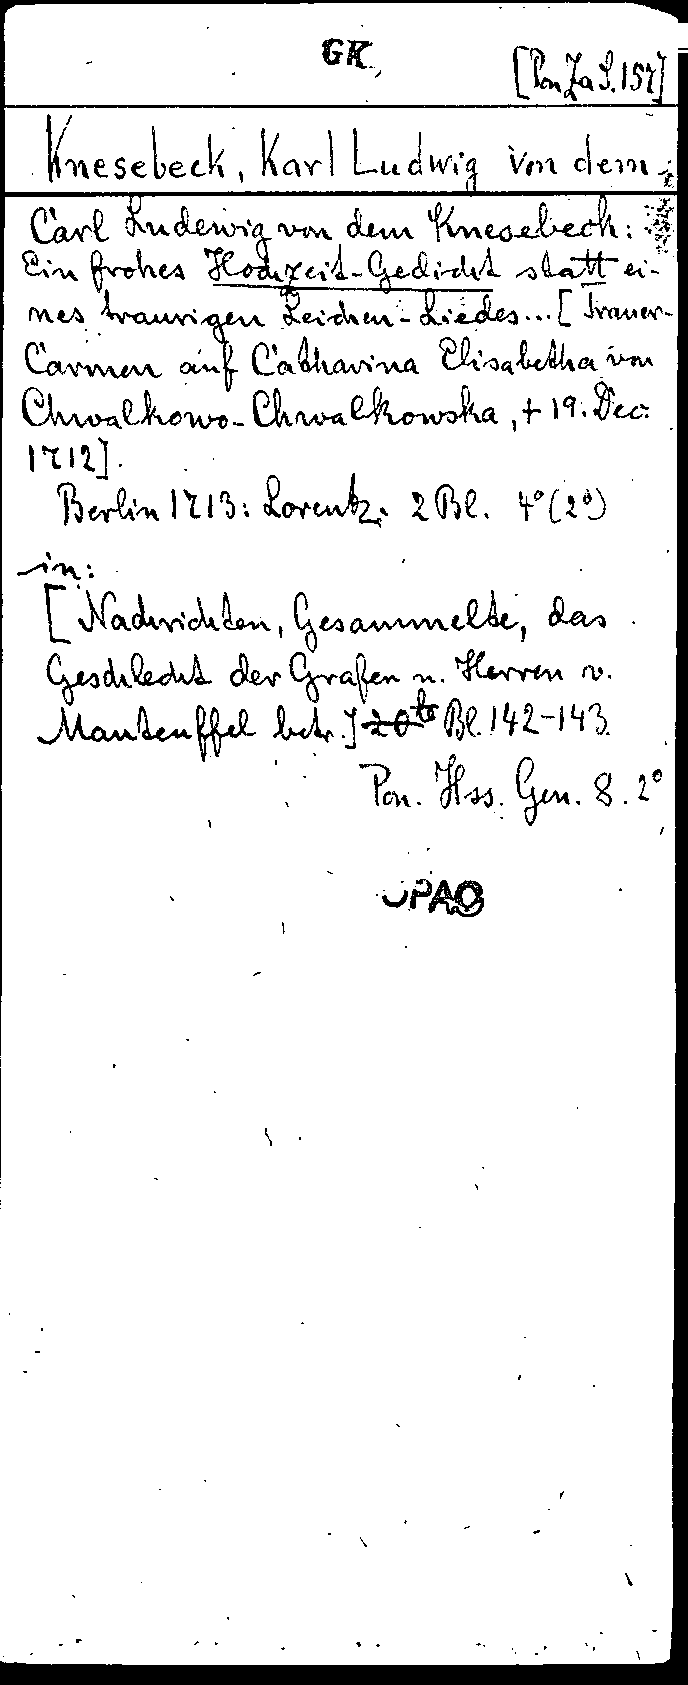 GK
[Pon Za S. 157]
Knesebeck, Karl Ludwig von dem
Carl Ludewig von dem Knesebeck:
Ein frohes Hochzeit-Gedicht statt ei-
nes traurigen Leichen-Liedes...[Trauer-
Carmen auf Catharina Elisabetha von
Chwalkowo-Chwalkowska, + 19. Dec.
1712].
Berlin 1713: Lorentz. 2 Bl. 4° (2°)
in:
[Nachrichten, Gesammelte, das
Geschlecht der Grafen u. Herren v.
Manteuffel betr.] Bl. 142-143
Pon. Hss. Gen. 8. 2°